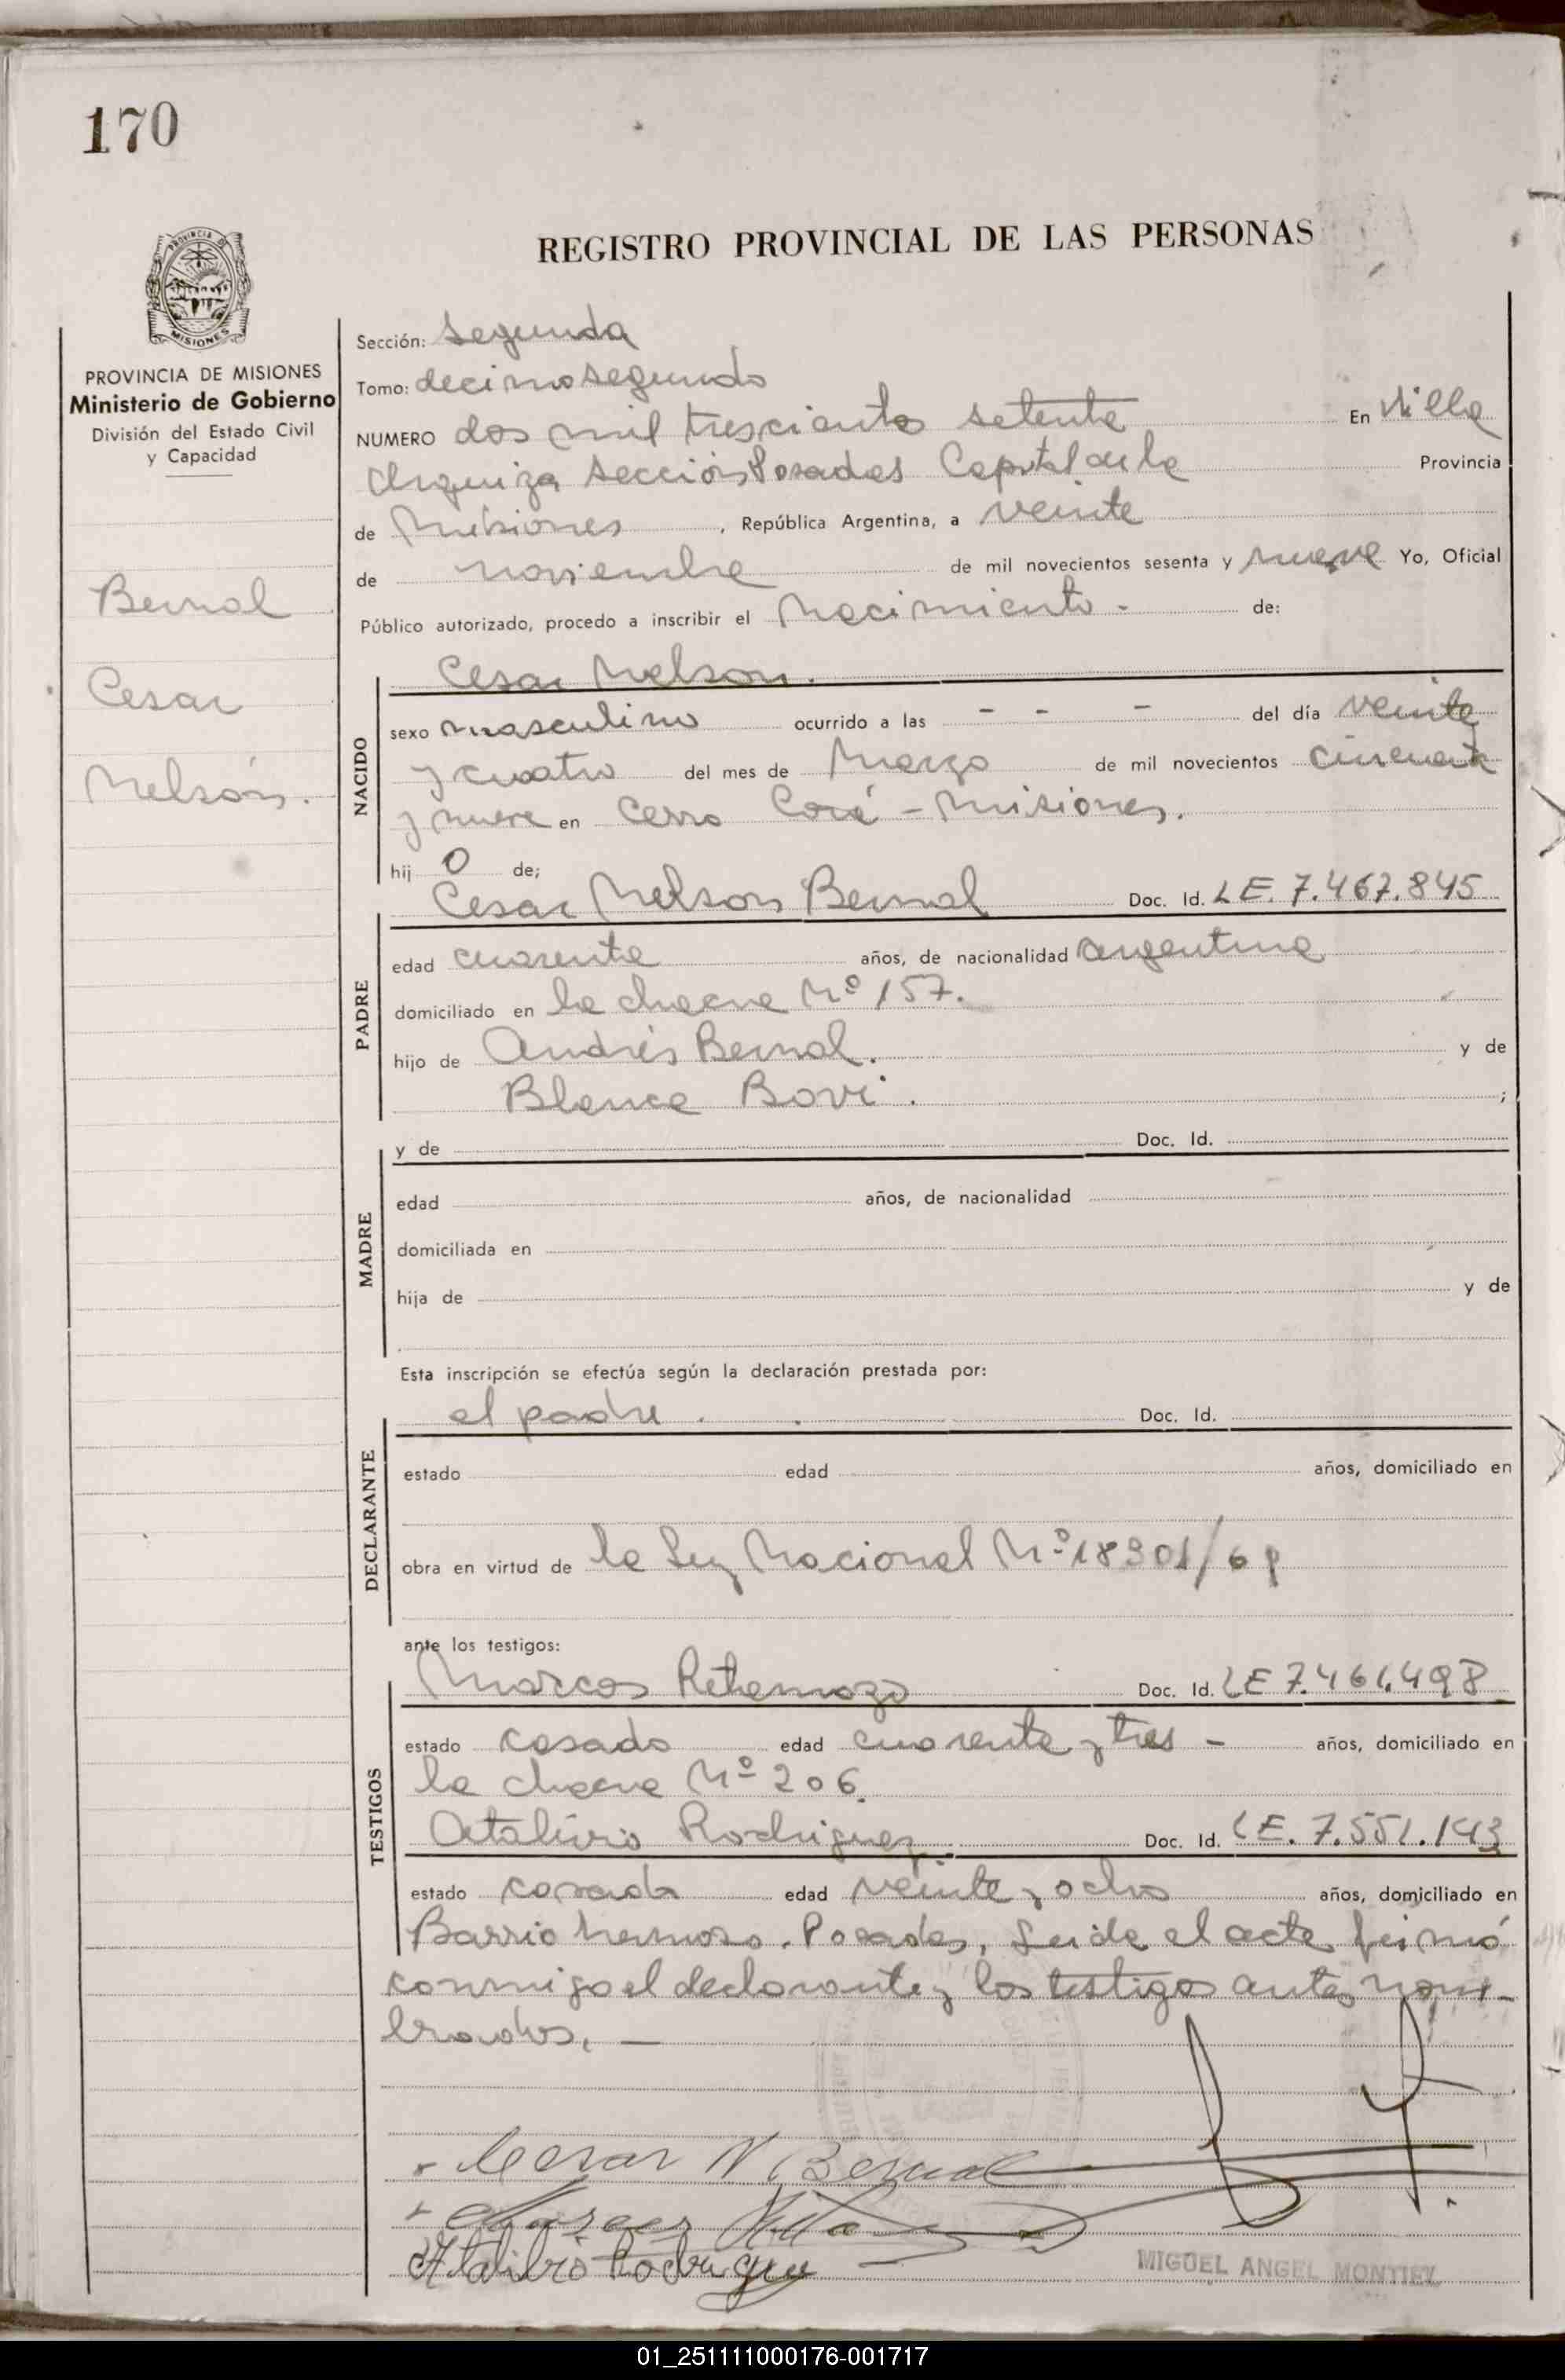 170
REGISTRO PROVINCIAL DE LAS PERSONAS
PROVINCIA DE MISIONES
PROVINCIA DE MISIONES
Ministerio de Gobierno
División del Estado Civil
y Capacidad
Bernal
Cesar
Nelsón.
Sección: Segunda
Tomo: decimosegundo
NUMERO dos mil trescientos setenta En Villa
Urquiza Sección Posadas Capital de la Provincia
de Misiones , República Argentina, a veinte
de noviembre de mil novecientos sesenta y nueve Yo, Oficial
Público autorizado, procedo a inscribir el Nacimiento - de:
NACIDO
Cesar Nelson.
sexo masculino ocurrido a las - - - del día veinte
y cuatro del mes de Marzo de mil novecientos cincuenta
y nueve en Cerro Corá - Misiones.
hij o de;
PADRE
Cesar Nelson Bernal Doc. Id. LE. 7.467.845
edad cuarenta años, de nacionalidad argentina
domiciliado en la chacra Nº 157.
hijo de Andrés Bernal. y de
Blanca Bovi. ;
MADRE
y de Doc. Id.
edad años, de nacionalidad
domiciliada en
hija de y de
Esta inscripción se efectúa según la declaración prestada por:
DECLARANTE
el padre. Doc. Id.
estado edad años, domiciliado en
obra en virtud de la Ley Nacional Nº 18301/69
ante los testigos:
TESTIGOS
Marcos Doc. Id. LE 7.461.498
estado casado edad cuarenta y tres - años, domiciliado en
la chacra Nº 206.
Atalivio Rodriguez. Doc. Id. LE. 7.551.143
estado casado edad veinte y ocho años, domiciliado en
Barrio hermoso. Posadas, Leida el acta firmó
conmigo el declarante y los testigos antes nom-
brados. —
Cesar N Bernal
Marcos
Atalibio Rodrigue
MIGUEL ANGEL MONTIEL
01_251111000176-001717